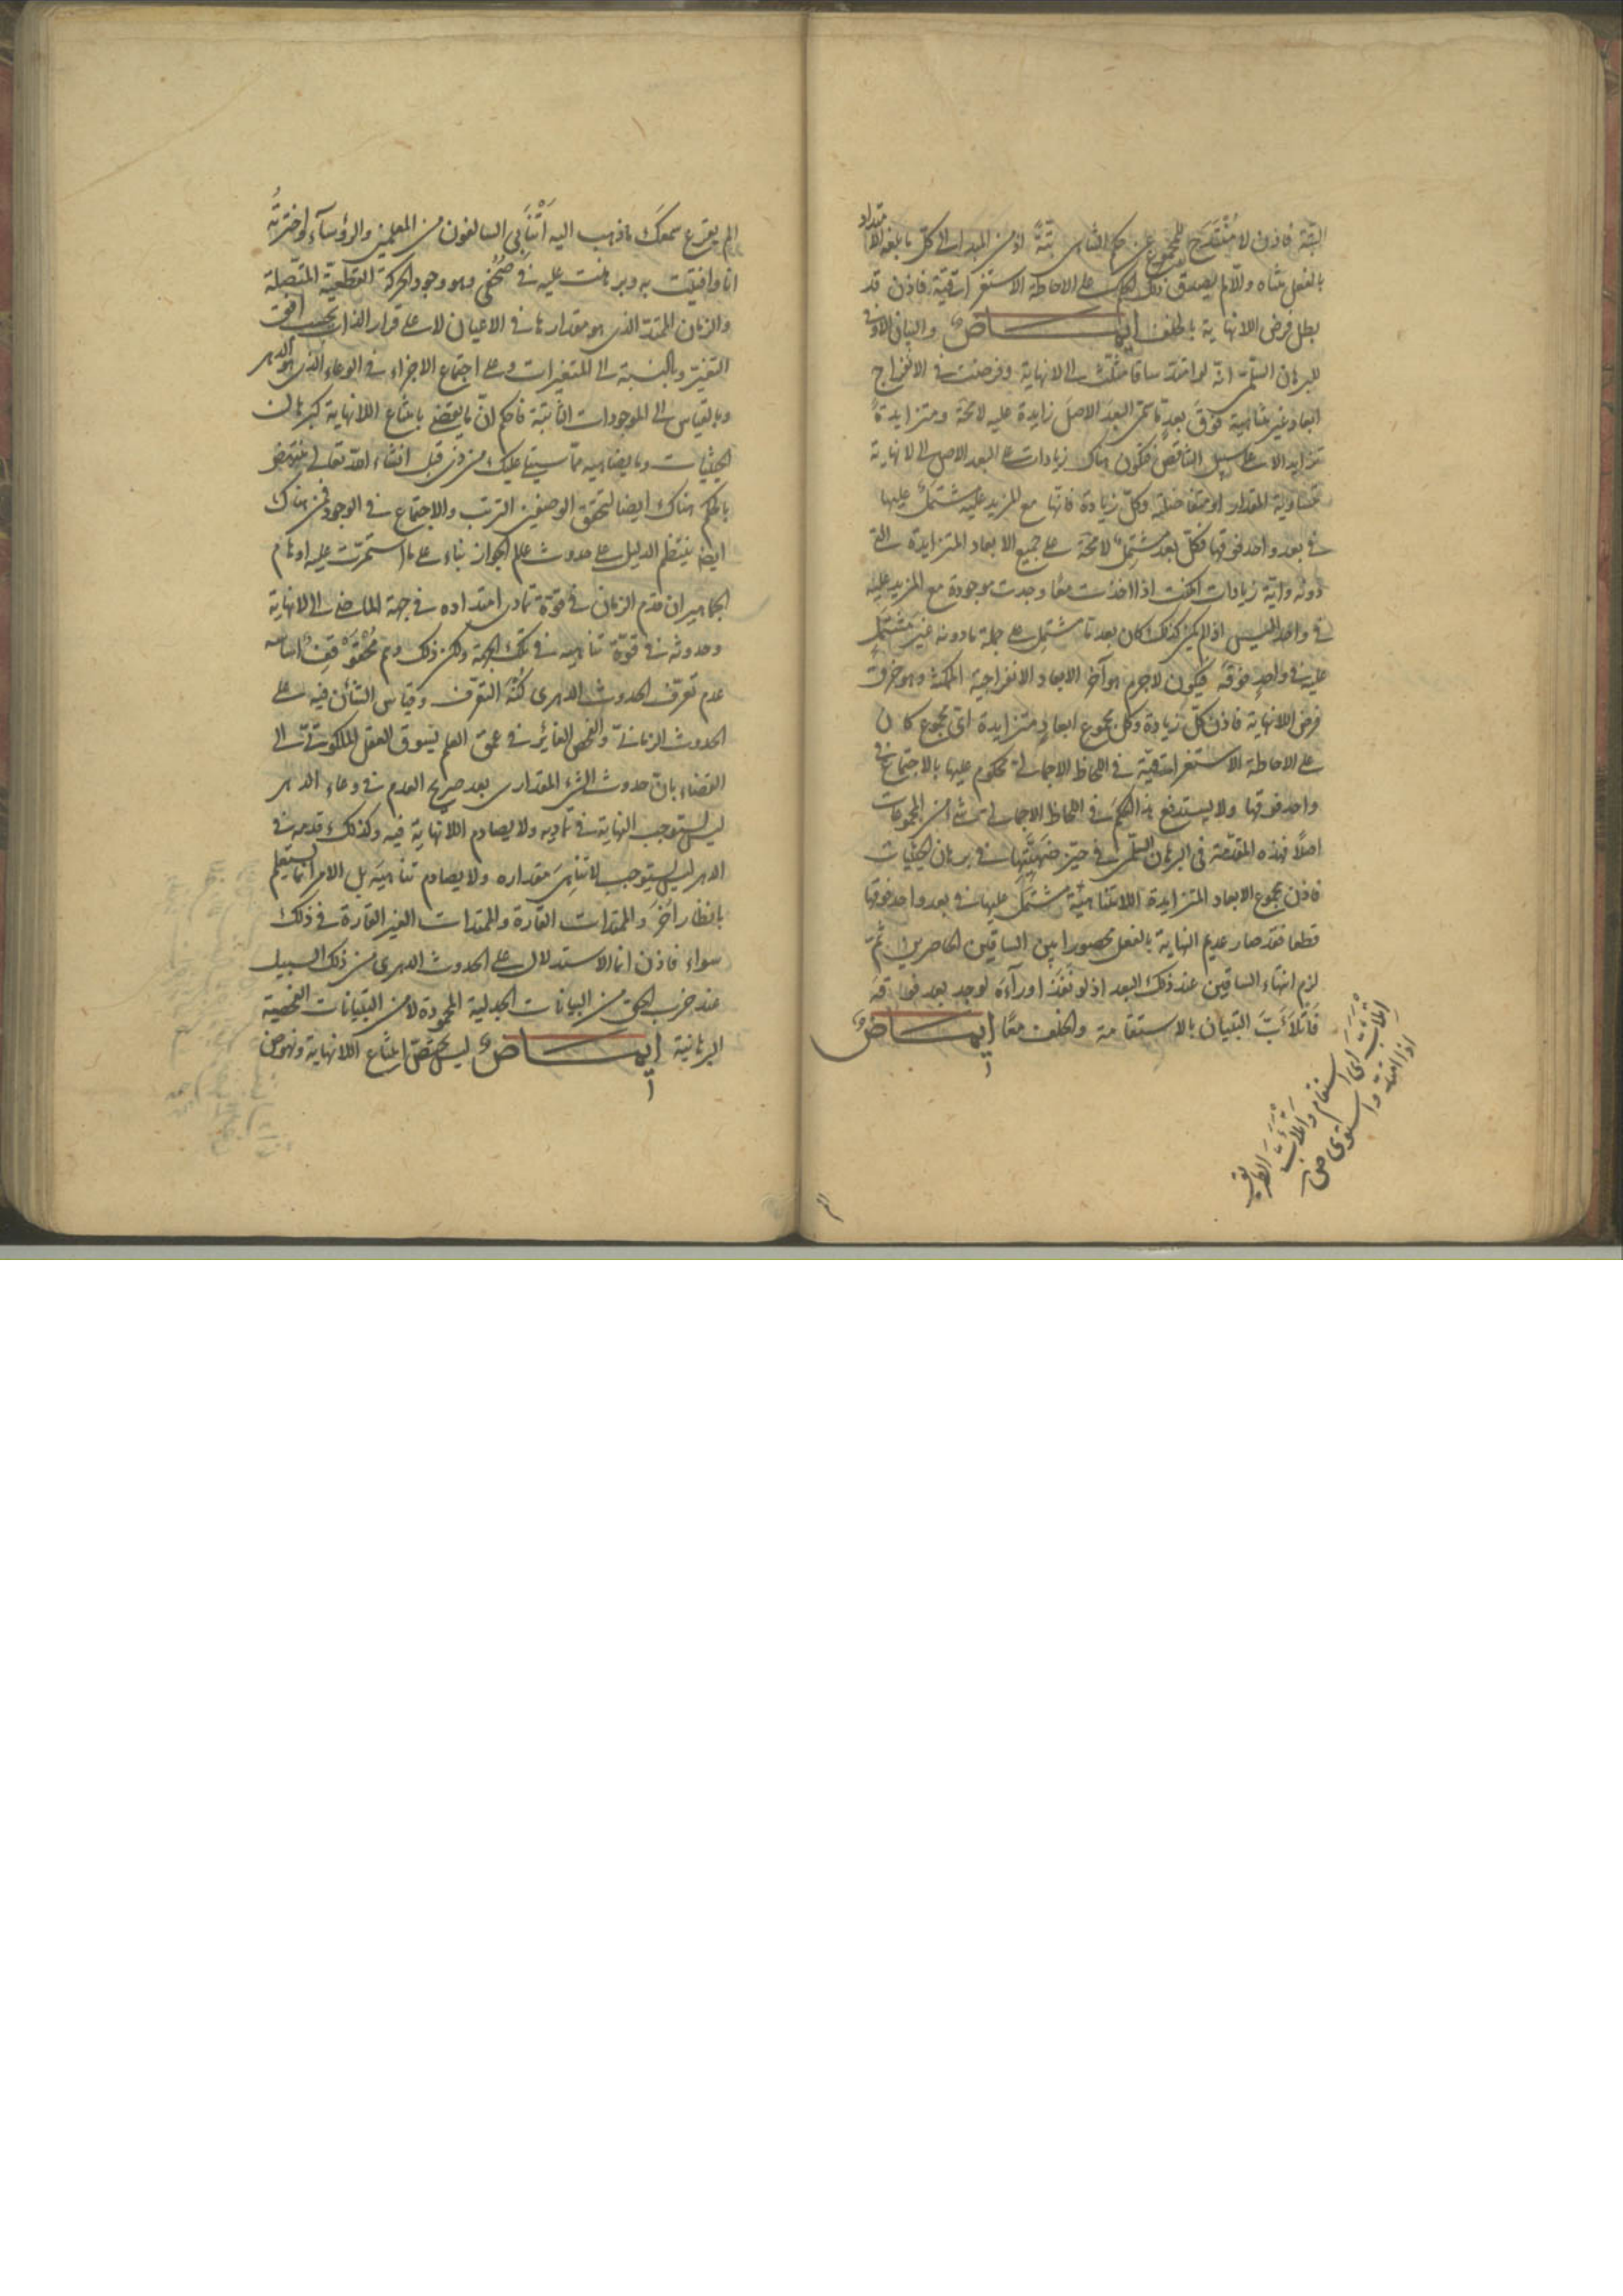 البتة فاذن لا منتدح للمجموع عن حكم التناهى بتة اذ من المبدء الى كل ما بلغه الامتداد
بالفعل متناه والا لم يصدق ذلك الحكم على الاحاطة الاستغراقية فاذن قد
بطل فرض اللانهاية بالخلف ايماض والبيان الاوفى
للبرهان السلمى انه لو امتدت ساقا مثلث الى لا نهاية وفرضت فى الانفراج
ابعاد غير متناهية فوق بعد ما سمى البعد الاصل زايدة عليه لامحة ومتزايدة
تزايدا لا على سبيل التناقص فتكون هناك زيادات على البعد الاصل الى لا نهاية
متساوية المقدار او متفاضلة وكل زيادة فانها مع المزيد عليه مشتمل عليها
فى بعد واحد فوقها فكل بعد مشتمل لا محة على جميع الابعاد المتزايدة التى
دونه واية زيادات امكنت اذا اخذت معا وجدت موجودة مع المزيد عليه
فى واحد اليس اذ لم يكن كذلك كان بعد ما مشتمل على جملة ما دونه غير مشتمل
عليه فى واحد فوقه فيكون لا جرم هو آخر الابعاد الانفراجية الممكنة وهو خرق
فرض اللانهاية فاذن كل زيادة وكل مجموع ابعاد متزايدة اى مجموع كان
على الاحاطة الاستغراقية فى اللحاظ الاجمالى محكوم عليها بالاجتماع فى
واحد فوقها ولا يستدفع هذا الحكم فى اللحاظ الاجمالى شئ من المجموعات
اصلا فهذه المقدمة فى البرهان السلمى فى حيز ضهيتها فى برهان الحيثيات
فاذن مجموع الابعاد المتزايدة اللامتناهية مشتمل عليها فى بعد واحد فوقها
قطعا فقد صار عديم النهاية بالفعل محصورا بين الساقين الحاصرين ثم
لزم انتهاء الساقين عند ذلك البعد اذ لو نفذا وراءه لوجد بعد فوقه
فاتلأب التبيان بالاستقامة والخلف معا ايماض
اتلأب اى استقام واتلأب الطريق
اذا امتد واستوى ص
الم
الم يقرع سمعك ما ذهب اليه اتنابى السالفون من المعلمين والرؤساء واخترته
انا وافيت به وبرهنت عليه فى صحفى وهو وجود الحركة القطعية المتصلة
والزمان الممتد الذى هو مقدارها فى الاعيان لا على قرار الذات بحسب افق
التغير وبالنسبة الى المتغيرات وعلى اجتماع الاجزاء فى الوعاء الذى هو الدهر
وبالقياس الى الموجودات الثابتة فاحكم ان ما يقضى بامتناع اللانهاية كبرهان
الحيثيات وما يضاهيه مما سيتلى عليك من ذى قبل انشاء الله تعالى ينتهض
بالحكم هناك ايضا لتحقق الوصفين الترتب والاجتماع فى الوجود فمن هناك
ايضا ينتظم الدليل على حدوث عالم الجواز بناء على ما استمرت عليه اوهام
الجماهير ان قدم الزمان فى قوة تمادى امتداده فى جهة الماضى الى لا نهاية
وحدوثه فى قوة تناهيه فى تلك الجهة ولكن ذلك وهم اساسه
عدم تعرف الحدوث الدهرى كنه التعرف وقياس الشأن فيه على
الحدوث الزمانى والفحص الغائر فى عمق العلم يسوق العقل الملكوتى الى
القضاء بان حدوث الشئ المقدارى بعد صريح العدم فى وعاء الدهر
ليس يستوجب النهاية فى تماديه ولا يصادم اللانهاية فيه وكذلك قدمه فى
الدهر ليس يستوجب لاتناهى مقداره ولا يصادم تناهيه بل الامر انما يستعلم
بانظار اخر والممتدات القارة والممتدات الغير القارة فى ذلك
سواء فاذن انما الاستدلال على الحدوث الدهرى من ذلك السبيل
عند حزب الحق من البيانات الجدلية المحمودة لا من التبيانات الفحصية
البرهانية ايماض ليس يختص امتناع اللانهاية ونهوض